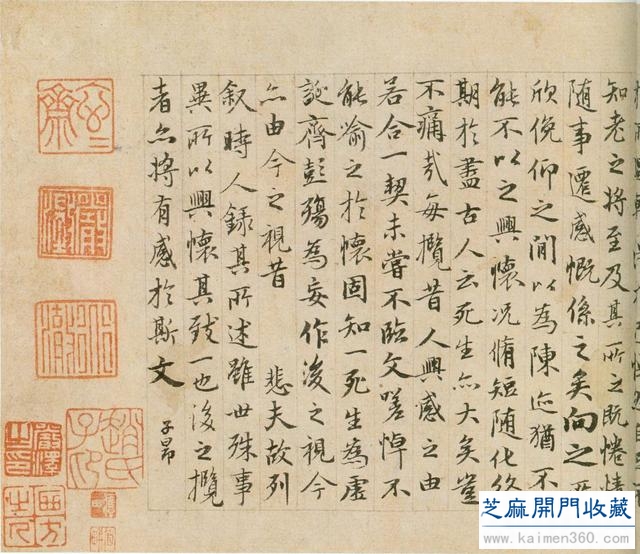 知老之将至及其所之既惓情
随事遷感慨係之矣向之所
欣俛仰之閒以為陳迹猶不
能不以之興懷況脩短随化終
期於盡古人云死生亦大矣豈
不痛哉每攬昔人興感之由
若合一契未嘗不臨文嗟悼不
能喻之於懷固知一死生為虛
誕齊彭殤為妄作後之視今
亦由今之視昔 悲夫故列
叙時人錄其所述雖世殊事
異所以興懷其致一也後之攬
者亦将有感於斯文
子昂
趙氏子昂
芝麻開門收藏
www.kaimen360.com